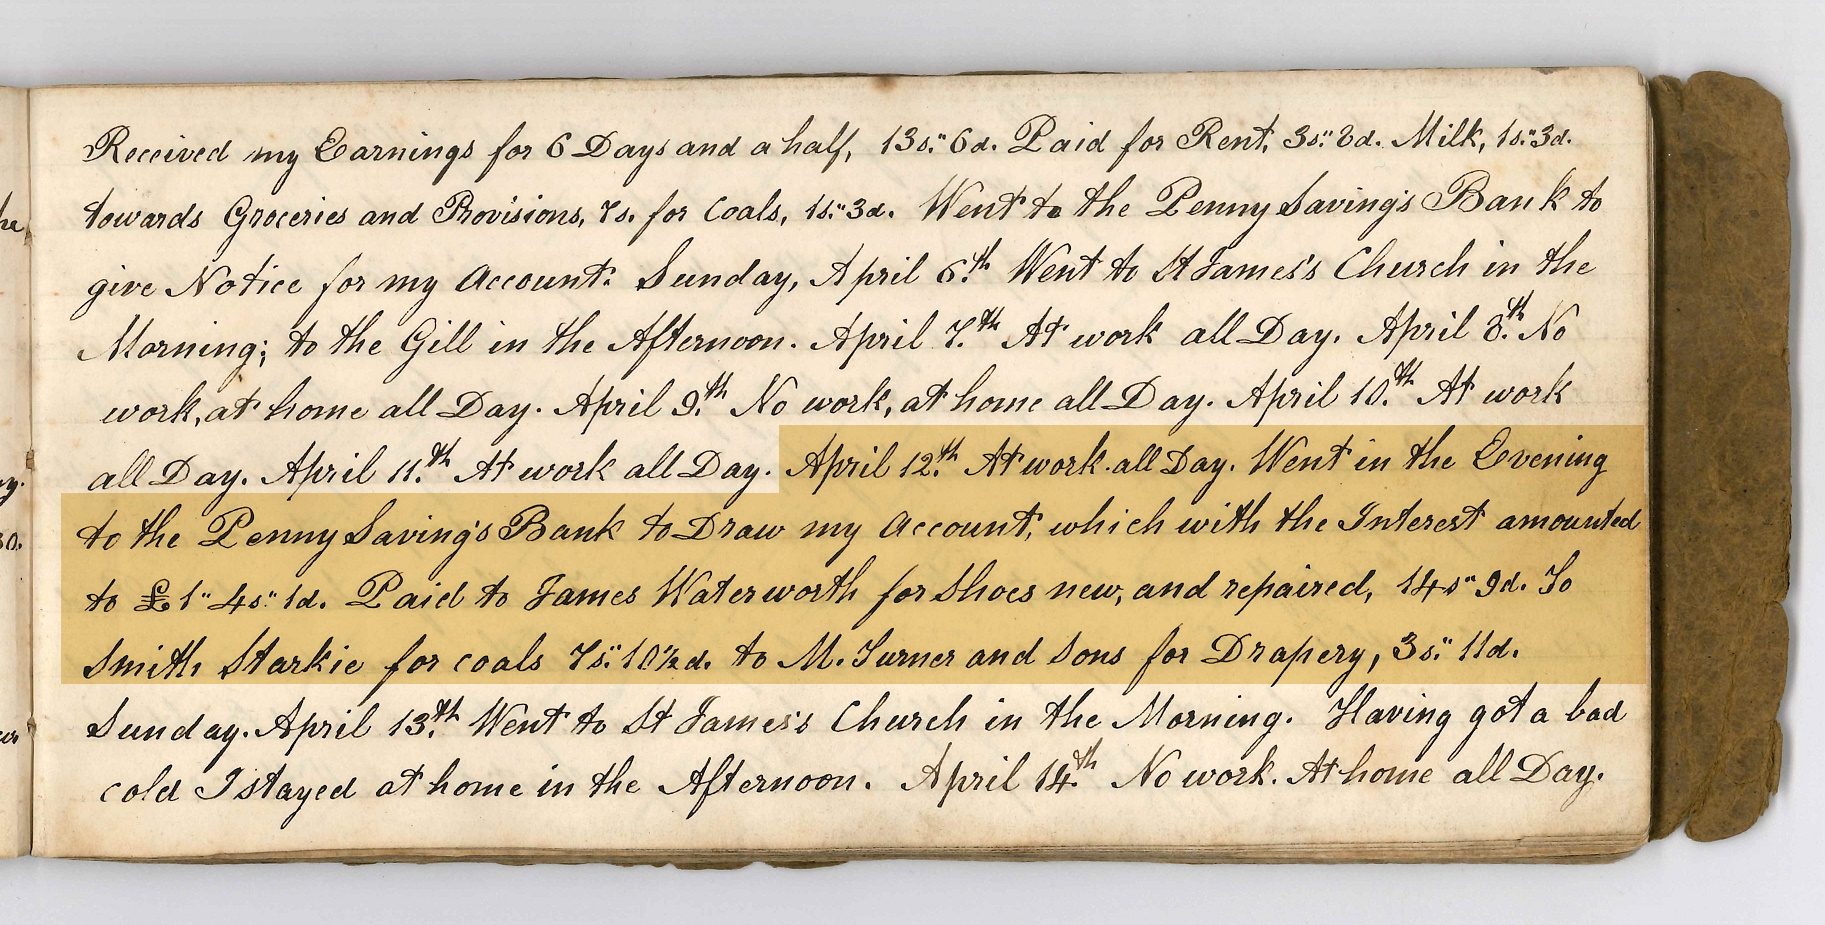 Received my Earnings for 6 Days and a half, 13s.″6d. Paid for Rent, 3s.″3d. Milk, 1s.″3d.
towards Groceries and Provisions, 7s. for Coals, 1s.″3d. Went to the Penny Saving's Bank to
give Notice for my Account. Sunday, April 6.th Went to St James's Church in the
Morning; to the Gill in the Afternoon. April 7.th At work all Day. April 8.th No
work, at home all Day. April 9.th No work, at home all Day. April 10.th At work
all Day. April 11.th At work all Day. April 12.th At work all Day. Went in the Evening
to the Penny Saving's Bank to Draw my Account, which with the Interest amounted
to £1″4s.″1d. Paid to James Waterworth for Shoes new, and repaired, 14s″9d. To
Smith Starkie for coals 7s.″10½d. to M. Turner and Sons for Drapery, 3s.″11d.
Sunday. April 13.th Went to St James's Church in the Morning. Having got a bad
cold I stayed at home in the Afternoon. April 14.th No work. At home all Day.